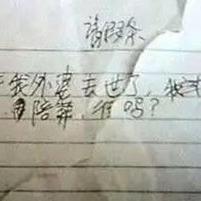 请假条
我外婆去世了,我
陪葬,行吗?